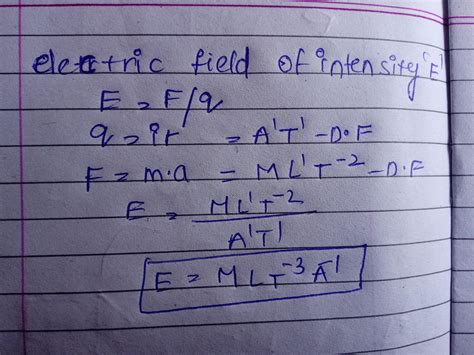 electric field of intensity 'E'
E = F/q
q = ir = A¹T¹ - D.F
F = m.a = ML¹T⁻² - D.F
E = ML¹T⁻²
A¹T¹
E = MLT⁻³A⁻¹